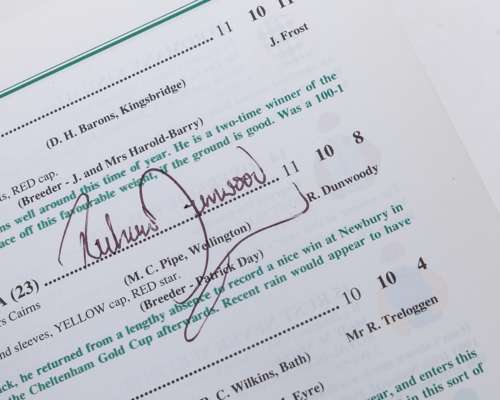 11 10 11
J. Frost
(D. H. Barons, Kingsbridge)
RED cap.
(Breeder - J. and Mrs Harold-Barry)
ns well around this time of year. He is a two-time winner of the
ace off this favourable weight, if the ground is good. Was a 100-1
Richard Dunwoody
11 10 8
R. Dunwoody
A (23)
(M. C. Pipe, Wellington)
rs Cairns
(Breeder - Patrick Day)
nd sleeves, YELLOW cap, RED star.
ck, he returned from a lengthy absence to record a nice win at Newbury in
the Cheltenham Gold Cup afterwards. Recent rain would appear to have
10 10 4
Mr R. Treloggen
C. Wilkins, Bath)
Eyre)
year, and enters this
in this sort of